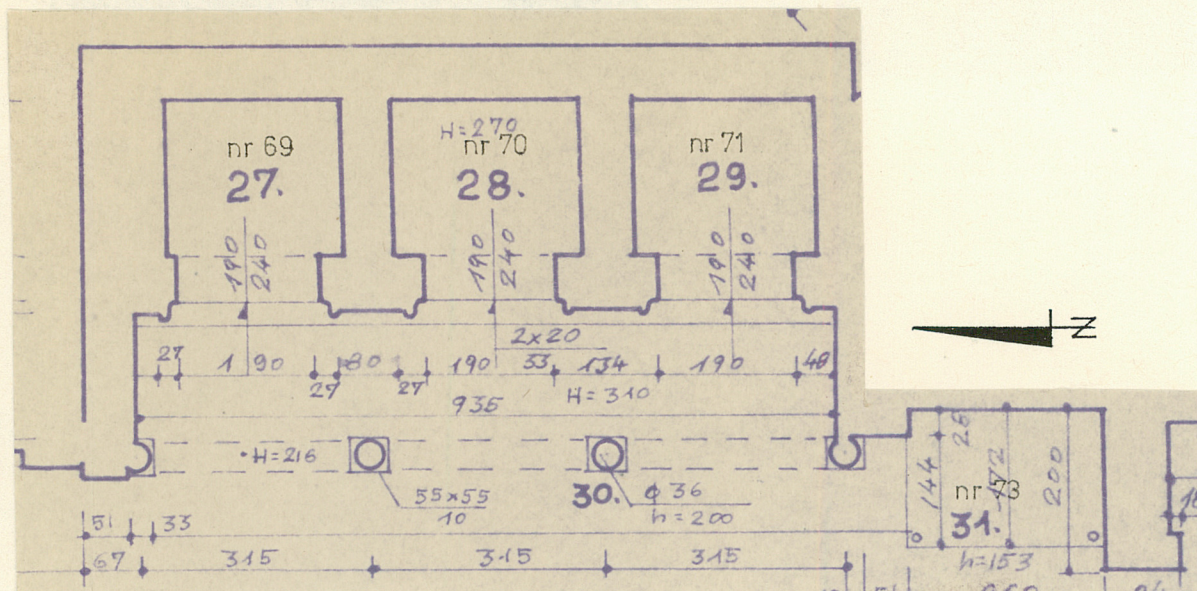 H=270
nr 69
nr 70
nr 71
27.
28.
29.
190
240
190
240
190
240
N
2x20
27
190
27
80
27
190
53
134
190
48
H=310
935
H=216
55x55
10
30.
ϕ 36
h=200
26
144
172
200
nr 73
31.
h=153
51
33
67
315
315
315